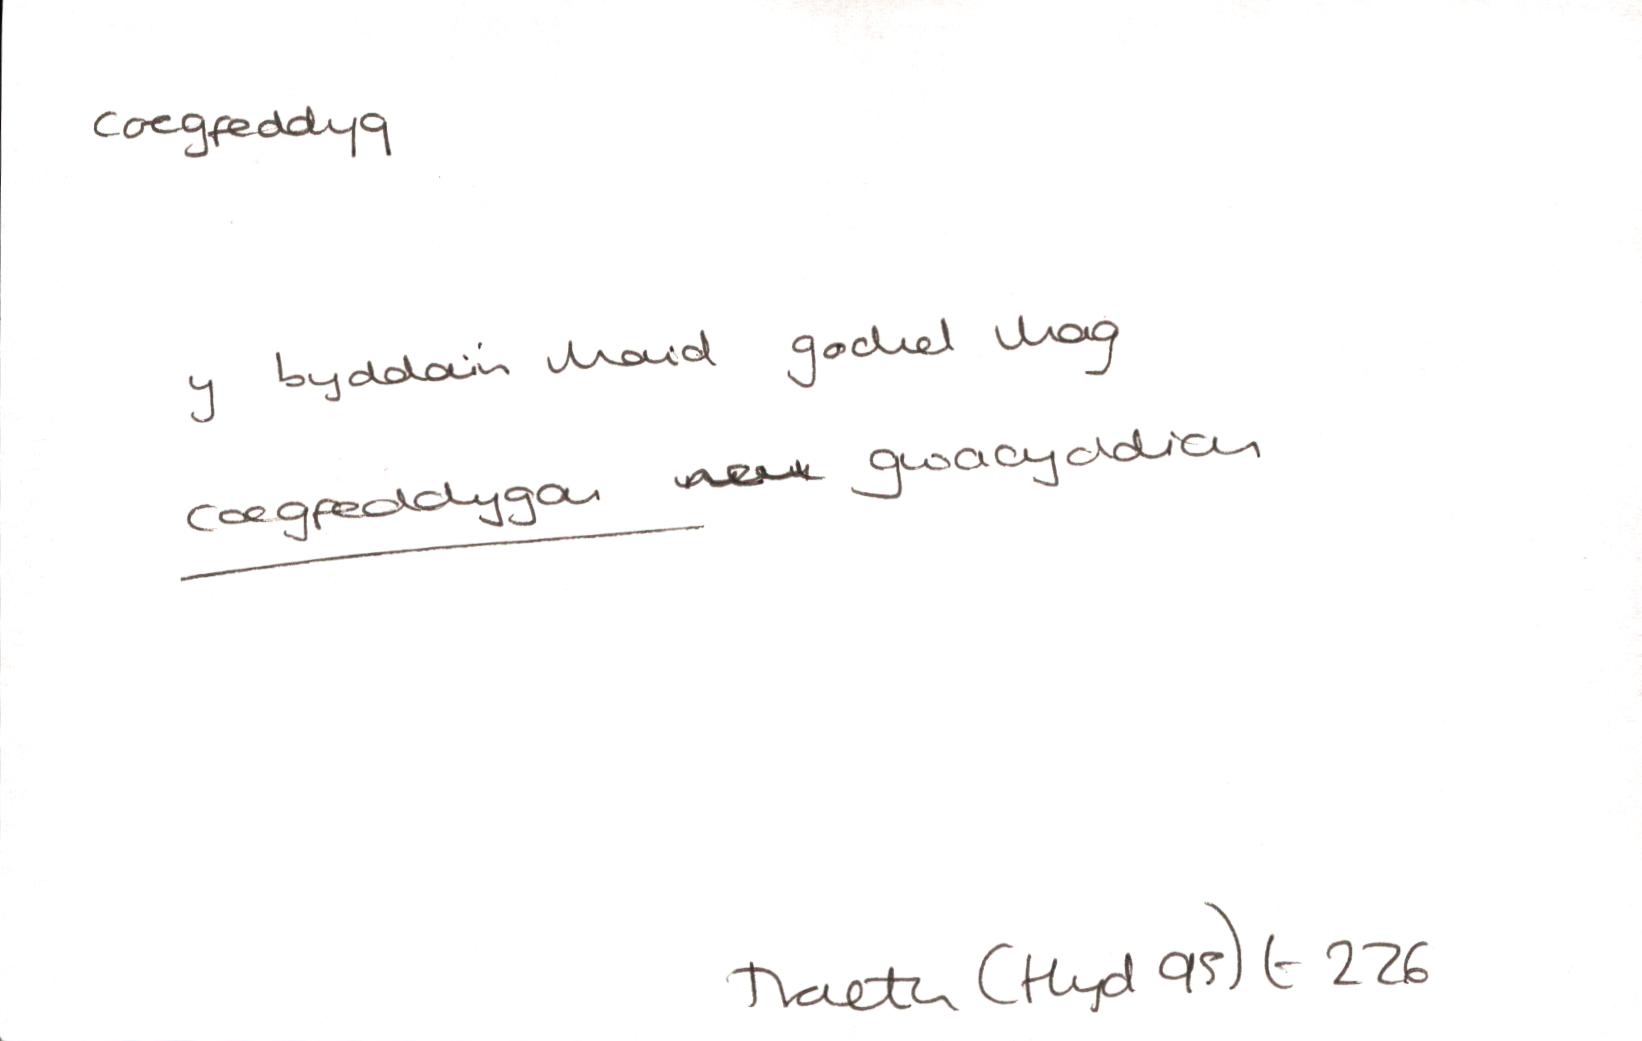 coegfeddyg
y byddai'n rhaid gochel rhag
coegfeddygon neu gwacyddion
Traeth (Hyd 95) t 226